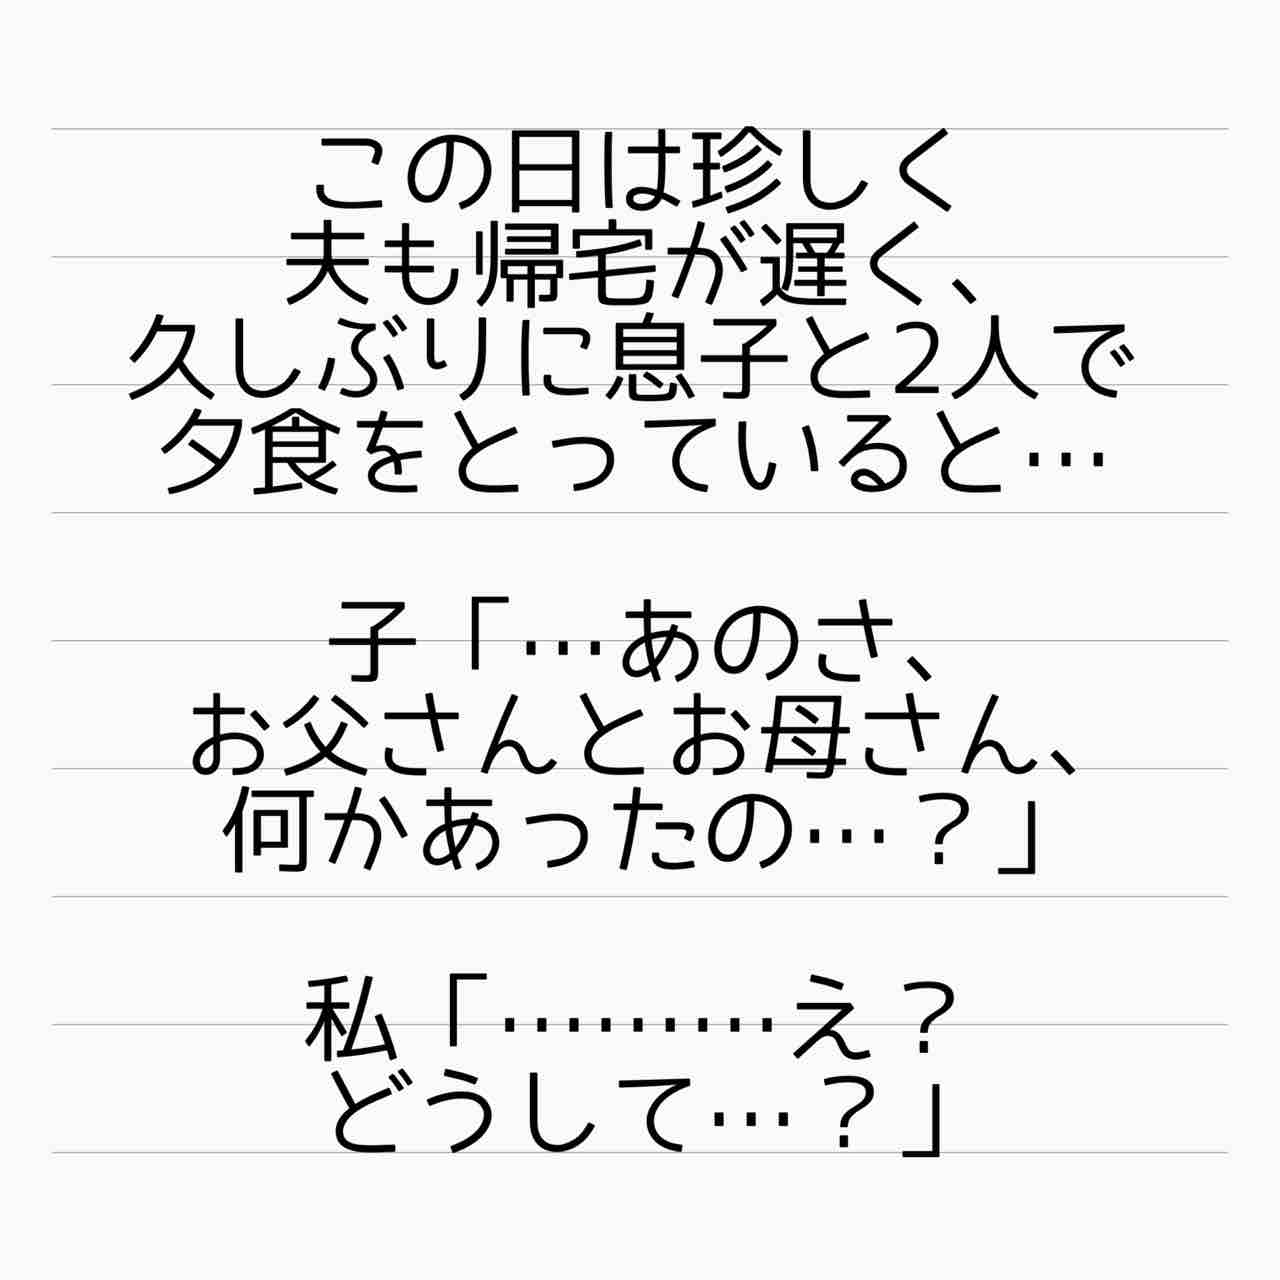 この日は珍しく
夫も帰宅が遅く、
久しぶりに息子と2人で
夕食をとっていると…
子「…あのさ、
お父さんとお母さん、
何かあったの…？」
私「………え？
どうして…？」